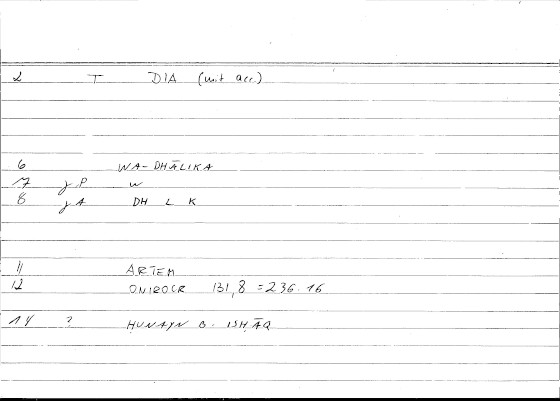 2 T DIA (mit acc.)
6 WA-DHĀLIKA
7 jP W
8 jA DH L K
11 ARTEM
12 ONIROCR 131,8 = 236.16
14 ? ḤUNAYN B. ISḤĀQ